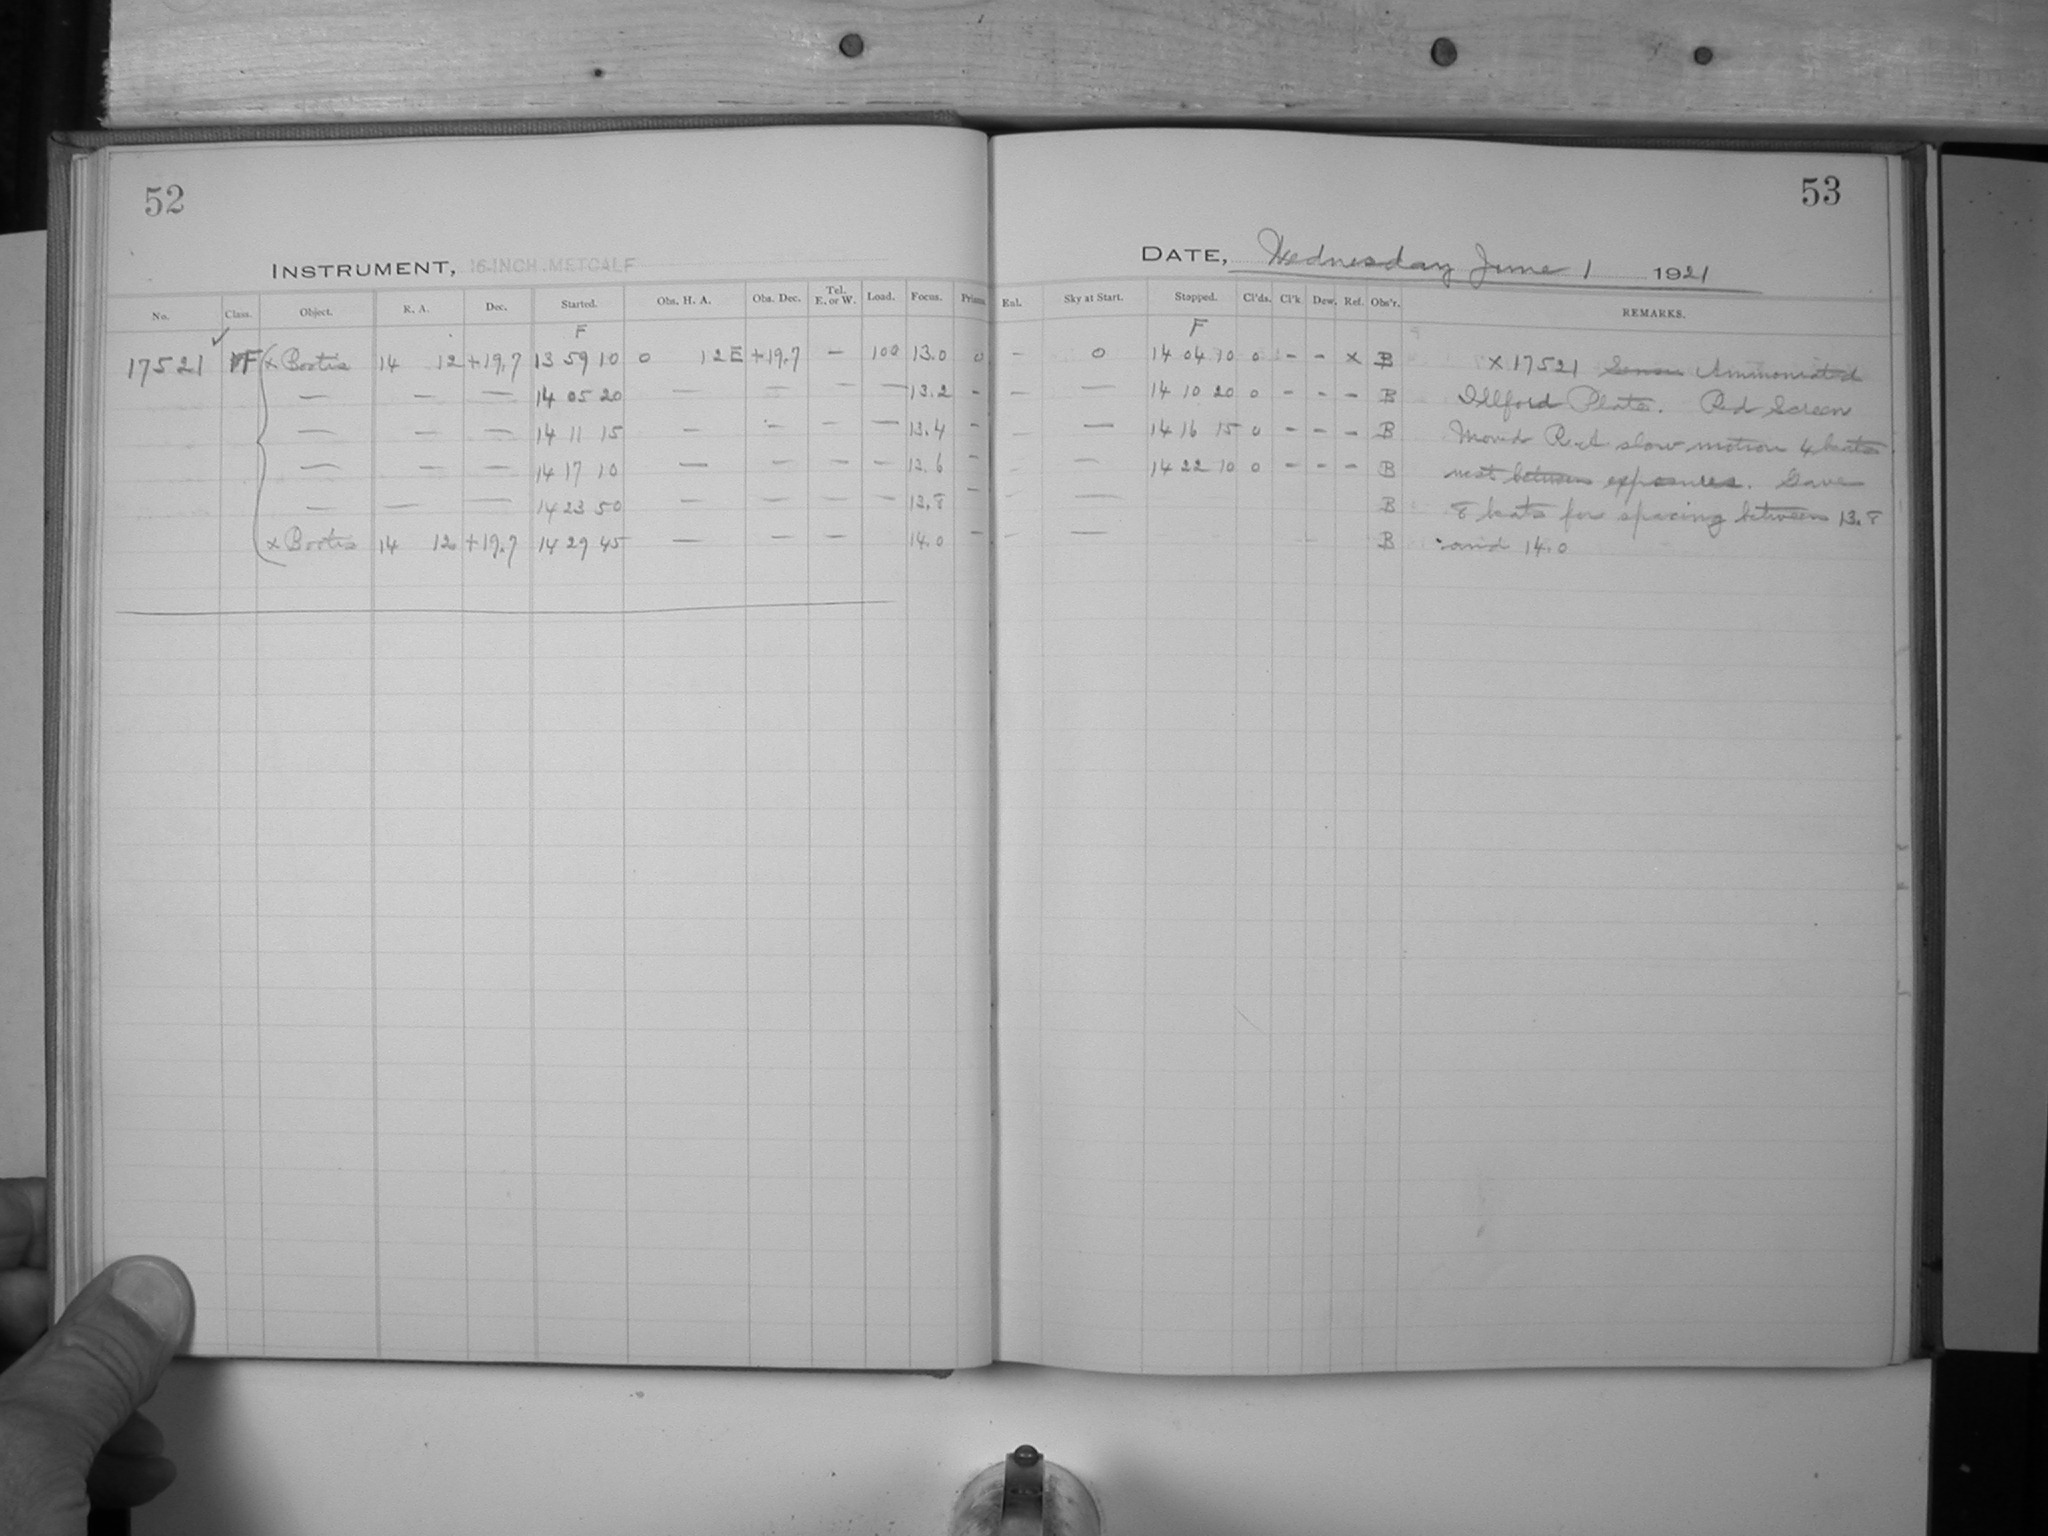 52
INSTRUMENT, 16-INCH METCALF
No. Class. Object. R. A. Dec. Started. Obs. H. A. Obs. Dec. Tel. E. or W. Load. Focus. Prisms
✓ F
17521 F x Bootis 14 12 +19.7 13 59 10 0 12 E +19.7 — 100 13.0 0
— — — 14 05 20 — — — — 13.2 -
— — — 14 11 15 — — — — 13.4 -
— — — 14 17 10 — — — — 13.6 -
— — — 14 23 50 — — — — 13.8 -
x Bootis 14 12 +19.7 14 29 45 — — — 14.0 -
53
DATE, Wednesday June 1 1921
Exl. Sky at Start. Stopped. Cl'ds. Cl'k. Dew. Ref. Obs'r. REMARKS.
F
— 0 14 04 10 0 - - x B x 17521 Ammoniated
— — 14 10 20 0 - - - B Illford Plate. Red Screen
— — 14 16 15 0 - - - B Moved R.A slow motion 4 beats
— — 14 22 10 0 - - - B west between exposures. Gave
— — B 8 beats for spacing between 13.8
— — B and 14.0